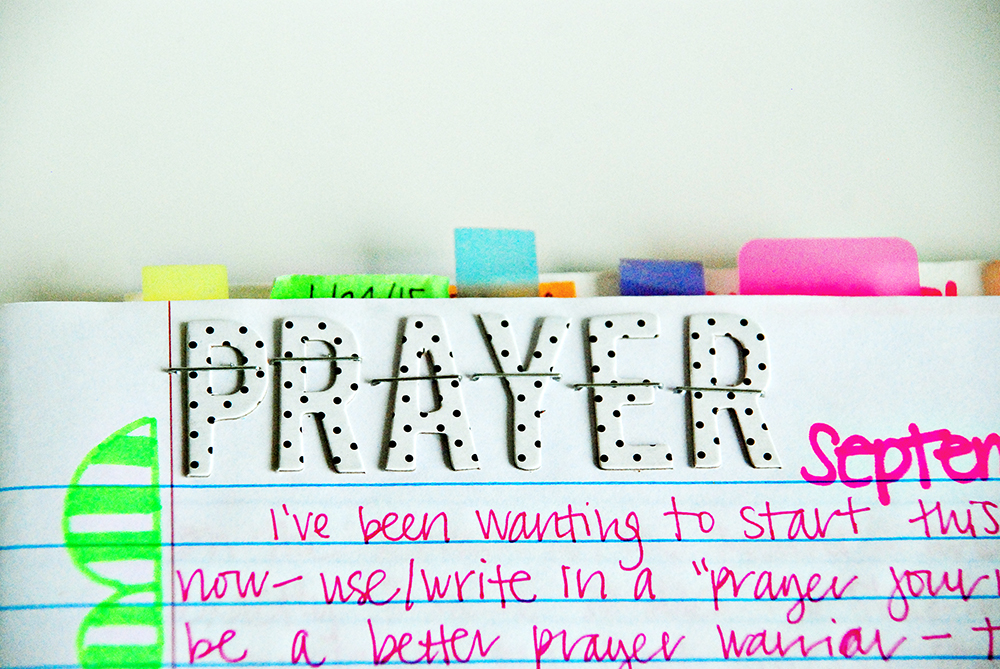 PRAYER
Septem
I've been wanting to start this
now - use/write in a "prayer jour
be a better prayer warrior - t